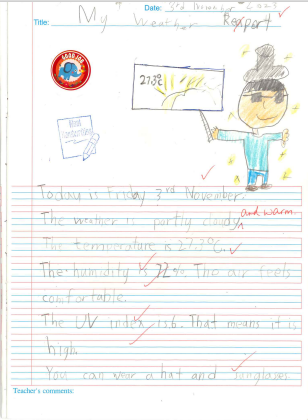 Date: 3rd November 2023
Title: My Weather Report
GOOD JOB
Neat
handwriting
27.3°C
Today is Friday 3rd November.
and warm
The weather is partly cloudy.
The temperature is 27.3°C.
The humidity is 72%. The air feels
comfortable.
The UV index is 6. That means it is
high.
You can wear a hat and sunglasses.
Teacher's comments: